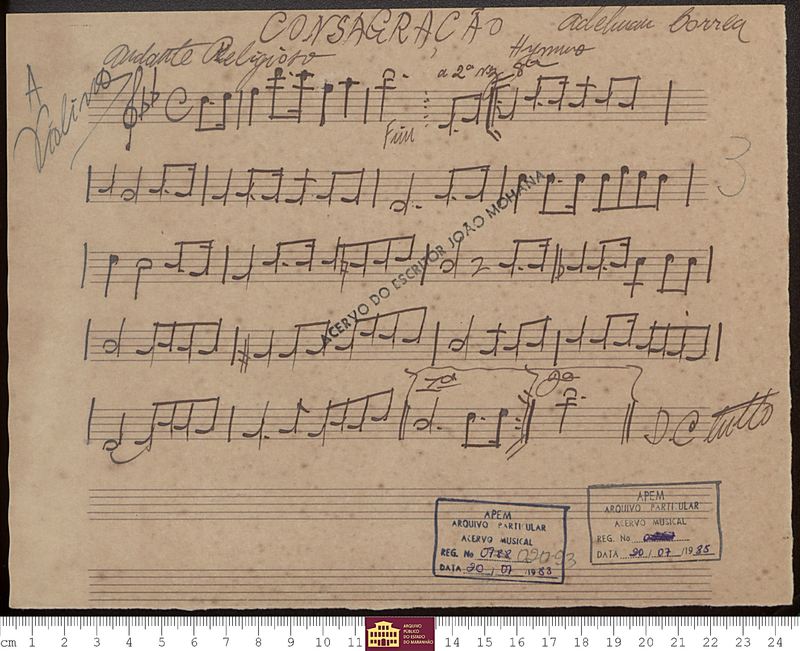 CONSAGRAÇÃO
Adelman Correa
Andante Religioso
Hymno
A
Violino
a 2ª vez 8va
Fim
3
ACERVO DO ESCRITOR JOÃO MOHANA
1ª
2ª
D.C. tutto
APEM
ARQUIVO PARTICULAR
ACERVO MUSICAL
REG. No
DATA 20 / 07 / 1983
APEM
ARQUIVO PARTICULAR
ACERVO MUSICAL
REG. No
DATA 20 / 07 / 1985
cm 1 2 3 4 5 6 7 8 9 10 11 14 15 16 17 18 19 20 21 22 23 24
ARQUIVO
PÚBLICO
DO ESTADO
DO MARANHÃO